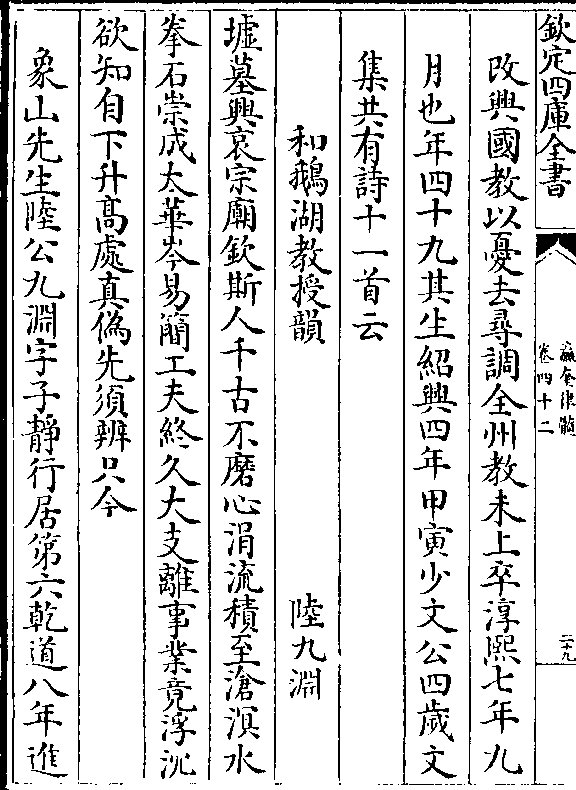 欽定四庫全書
瀛奎律髓
卷四十二
二十九
改興國教以憂去尋調全州教未上卒淳熙七年九
月也年四十九其生紹興四年甲寅少文公四歲文
集共有詩十一首云
和鵝湖教授韻
陸九淵
墟墓興哀宗廟欽斯人千古不磨心涓流積至滄溟水
拳石崇成太華岑易簡工夫終久大支離事業竟浮沉
欲知自下升髙處真偽先須辨只今
象山先生陸公九淵字子靜行居第六乾道八年進